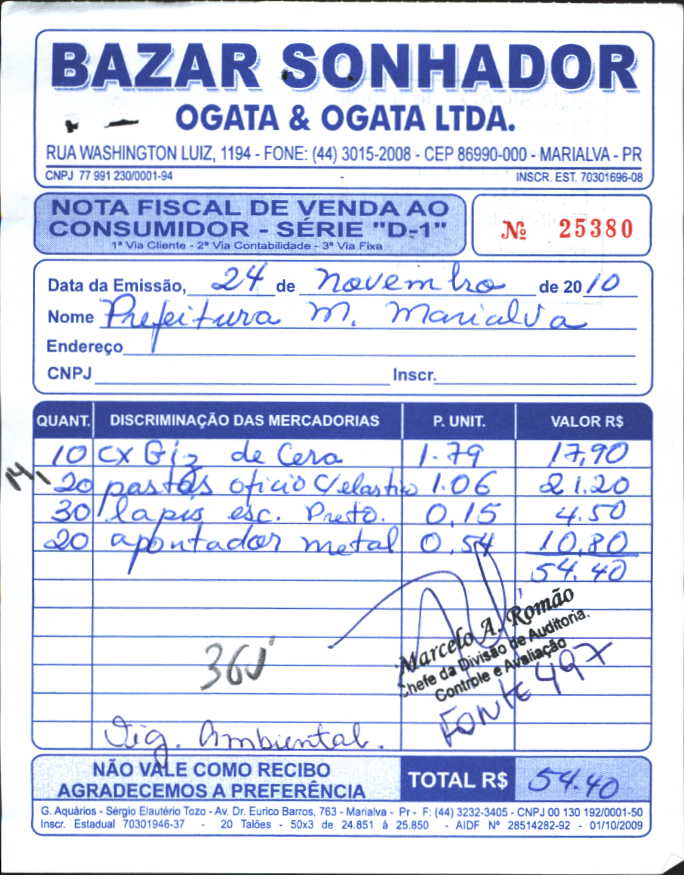 BAZAR SONHADOR
OGATA & OGATA LTDA.
RUA WASHINGTON LUIZ, 1194 - FONE: (44) 3015-2008 - CEP 86990-000 - MARIALVA - PR
CNPJ 77 991 230/0001-94 - INSCR. EST. 70301696-08
NOTA FISCAL DE VENDA AO
CONSUMIDOR - SÉRIE "D-1"
1ª Via Cliente - 2ª Via Contabilidade - 3ª Via Fixa
Nº 25380
Data da Emissão, 24 de novembro de 2010
Nome Prefeitura M. Marialva
Endereço
CNPJ Inscr.
QUANT. DISCRIMINAÇÃO DAS MERCADORIAS P. UNIT. VALOR R$
10 cx Giz de Cera 1.79 17,90
20 pastas oficio c/elastico 1.06 21.20
30 lapis esc. Preto. 0,15 4.50
20 apontador metal 0,54 10,80
54.40
Marcelo A. Romão
Chefe da Divisão de Auditoria,
Controle e Avaliação
360
FONTE 497
Vig. Ambiental.
NÃO VALE COMO RECIBO
AGRADECEMOS A PREFERÊNCIA
TOTAL R$ 54.40
G. Aquários - Sérgio Elautério Tozo - Av. Dr. Eurico Barros, 763 - Marialva - Pr - F: (44) 3232-3405 - CNPJ 00 130 192/0001-50
Inscr. Estadual 70301946-37 - 20 Talões - 50x3 de 24.851 à 25.850 - AIDF Nº 28514282-92 - 01/10/2009